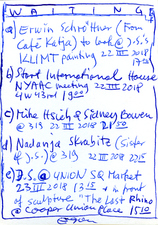 WAITING
a) Erwin Schrö
Café Katja) to look @ J.S.'s
KLIMT painting 22 III 2018
b) Start International House
NYABC meeting 22 III 2018
4 W 43rd 1900
c) Mike Hsich & Sidney Bowen
@ 319 22 III 2018 2150
d) Nadanja Skrabitz (Sister
of J.S.) @ 319 22 III 2018
e) D.S. @ UNION SQ MARKET
23 III 2018 in front
of sculpture "The Last Rhino"
@ Cooper Union Place 1510